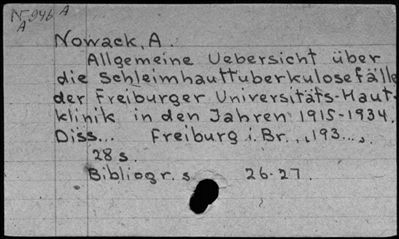 N-946 A
A
Nowack, A.
Allgemeine Uebersicht über
die Schleimhauttuberkulosefälle
der Freiburger Universitäts-Haut-
klinik in den Jahren 1915-1934.
Diss... Freiburg i. Br., 193...,
28 s.
Bibliogr. s. 26-27.